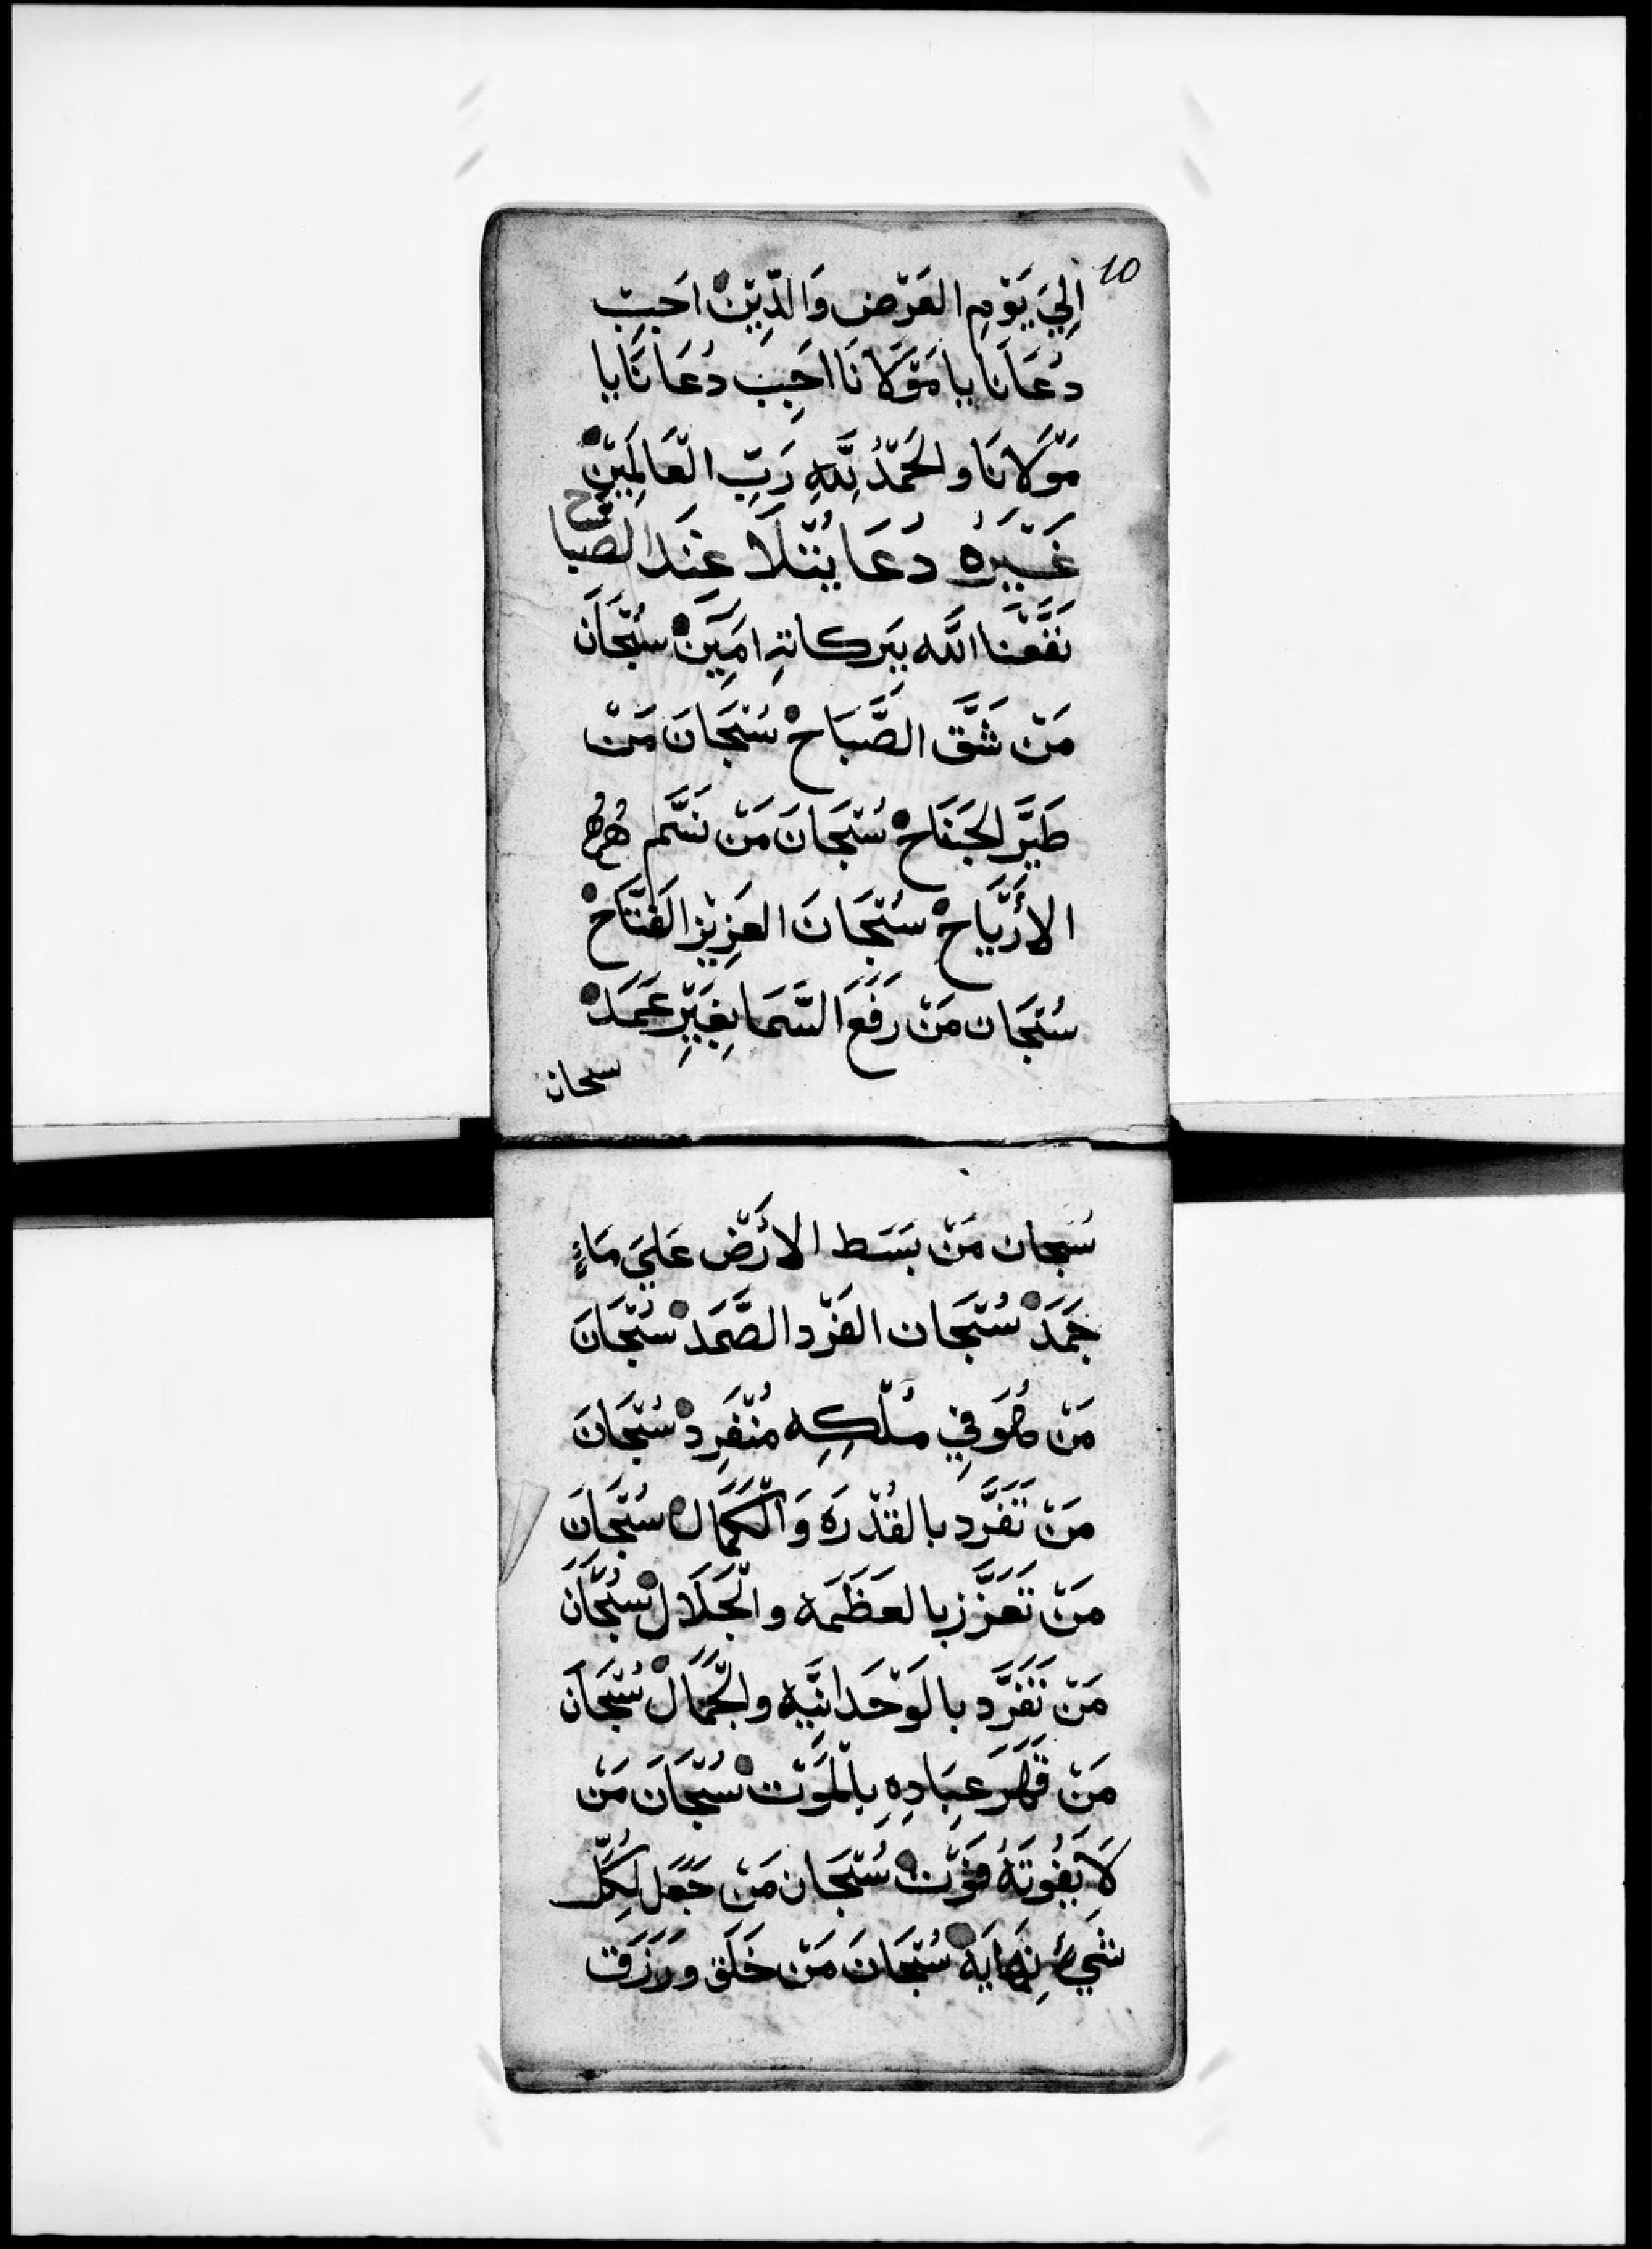 10
اِلَيَ يَوْمِ العَرْض وَالدِّيْنْ اَجِبْ
دُعَانَا يا مَوْلَانَا اجِبْ دُعَانَا يا
مَوْلَانَا والحَمْدُ لِلَّهِ رَبِّ الْعَالَمِيْنْ
غَيْرُهُ دُعَا يُتْلَا عِنْدَ الصبا
ح
نَفَعْنَا اللَّه بِبَركاتِهِ امِيَنْ سُبْحَانَ
مَنْ شَقَّ الصَّبَاحْ سُبْحَانَ مَنْ
طَيَّر الجَنَاحْ سُبْحَانَ مَنْ نَسَّم
الاَرْيَاحْ سُبْحَانَ العَزِيْز الفَتَّاحْ
سُبْحَان مَنْ رَفَعَ السَّمَا بِغَيْرِ عَمَدْ
سبحان
سُبحان مَنْ بَسَط الاَرْض عَلَيَ مَاءٍ
جَمَدْ سُبْحَان الفَرْد الصَّمَدْ سُبْحَانَ
مَنْ هُوَ فِي مُلْكِهِ مُنْفَرِدْ سُبْحَانَ
مَنْ تَفَرَّد بالقُدْرَه وَالْكَمَالْ سُبْحَانَ
مَنْ تَعَزَّز بالعَظَمَه والْجَلَالْ سُبْحَانَ
مَنْ تَفَرَّد بالوَحْدَانِيَّه والْجَمَالْ سُبْحَانَ
مَنْ قَهَرَ عِبَادِهِ بِالْمَوْتْ سُبْحَانَ مَنْ
لَا يَفُوتَهُ فَوْتْ سُبْحَان مَنْ جَعَل لِكُلِّ
شَيءٍ نِهَايَهْ سُبْحَانَ مَنْ خَلَق ورَزَقْ